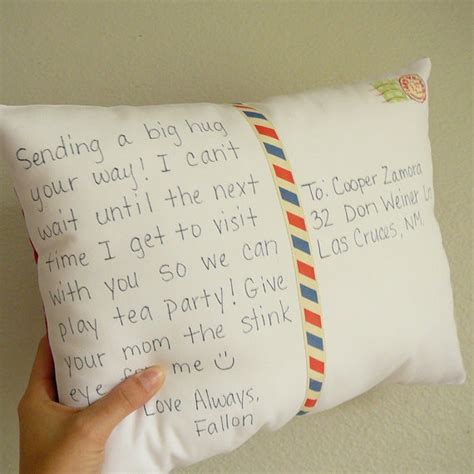 Sending a big hug
your way! I can't
wait until the next
time I get to visit
with you so we can
play tea party! Give
your mom the stink
eye for me
Love Always,
Fallon
To: Cooper Zamora
32 Don Weiner Ln
Las Cruces, NM